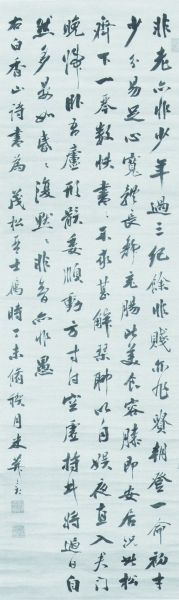 非老亦非少年過三紀餘非賤亦非貴朝登一命初才
少分易足心寬體長舒充腸皆美食容膝即安居況此松
齋下一琴數帙書〻不求甚解琴聊以自娛夜直入君門
晚歸臥吾廬形骸委順動方寸付空虛持此將過日自
然多晏如昏〻復默〻非智亦非愚
右白香山詩書為茂松吾士屬時丁未脩禊月